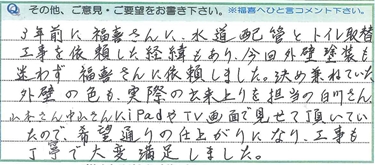 Q その他、ご意見・ご要望をお書き下さい。※福喜へひと言コメント下さい。
3年前に福喜さんに、水道配管とトイレ取替
工事を依頼した経緯もあり、今回外壁塗装も
迷わず福喜さんに依頼しました。決め兼ねていた
外壁の色も、実際の出来上りを担当の白川さん、
山本さん中山さんにiPadやTV画面で見せて頂いてい
たので、希望通りの仕上がりになり、工事も
丁寧で大変満足しました。